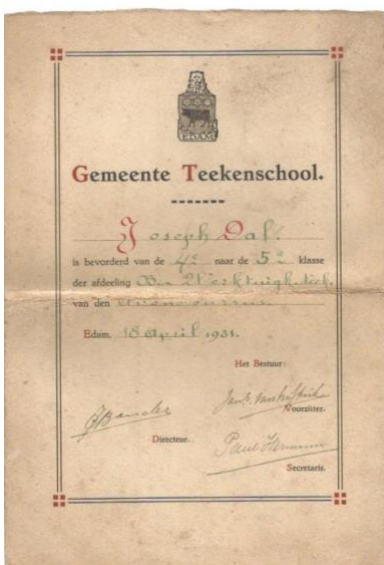 EDAM
Gemeente Teekenschool.
Joseph Dal.
is bevorderd van de 4e naar de 5e klasse
der afdeeling Bw Werktuigk.teek.
van den Avondcursus.
Edam, 18 April 1931.
Het Bestuur:
Voorzitter.
Directeur.
Paul
Secretaris.